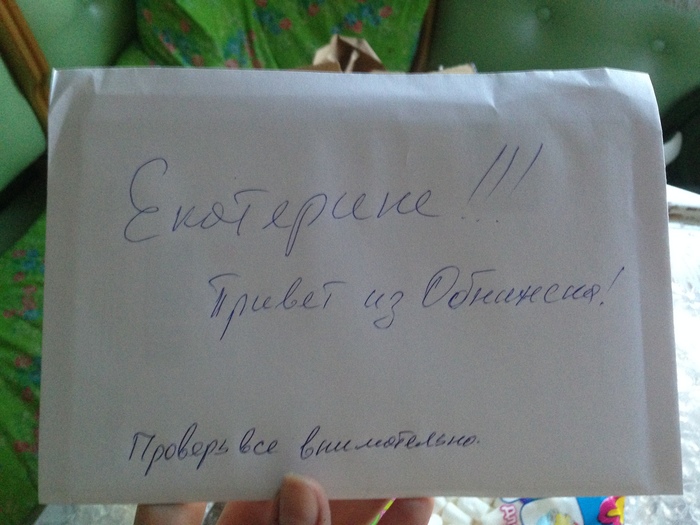 Екатерине!!!
Привет из Обнинска!
Проверь все внимательно.